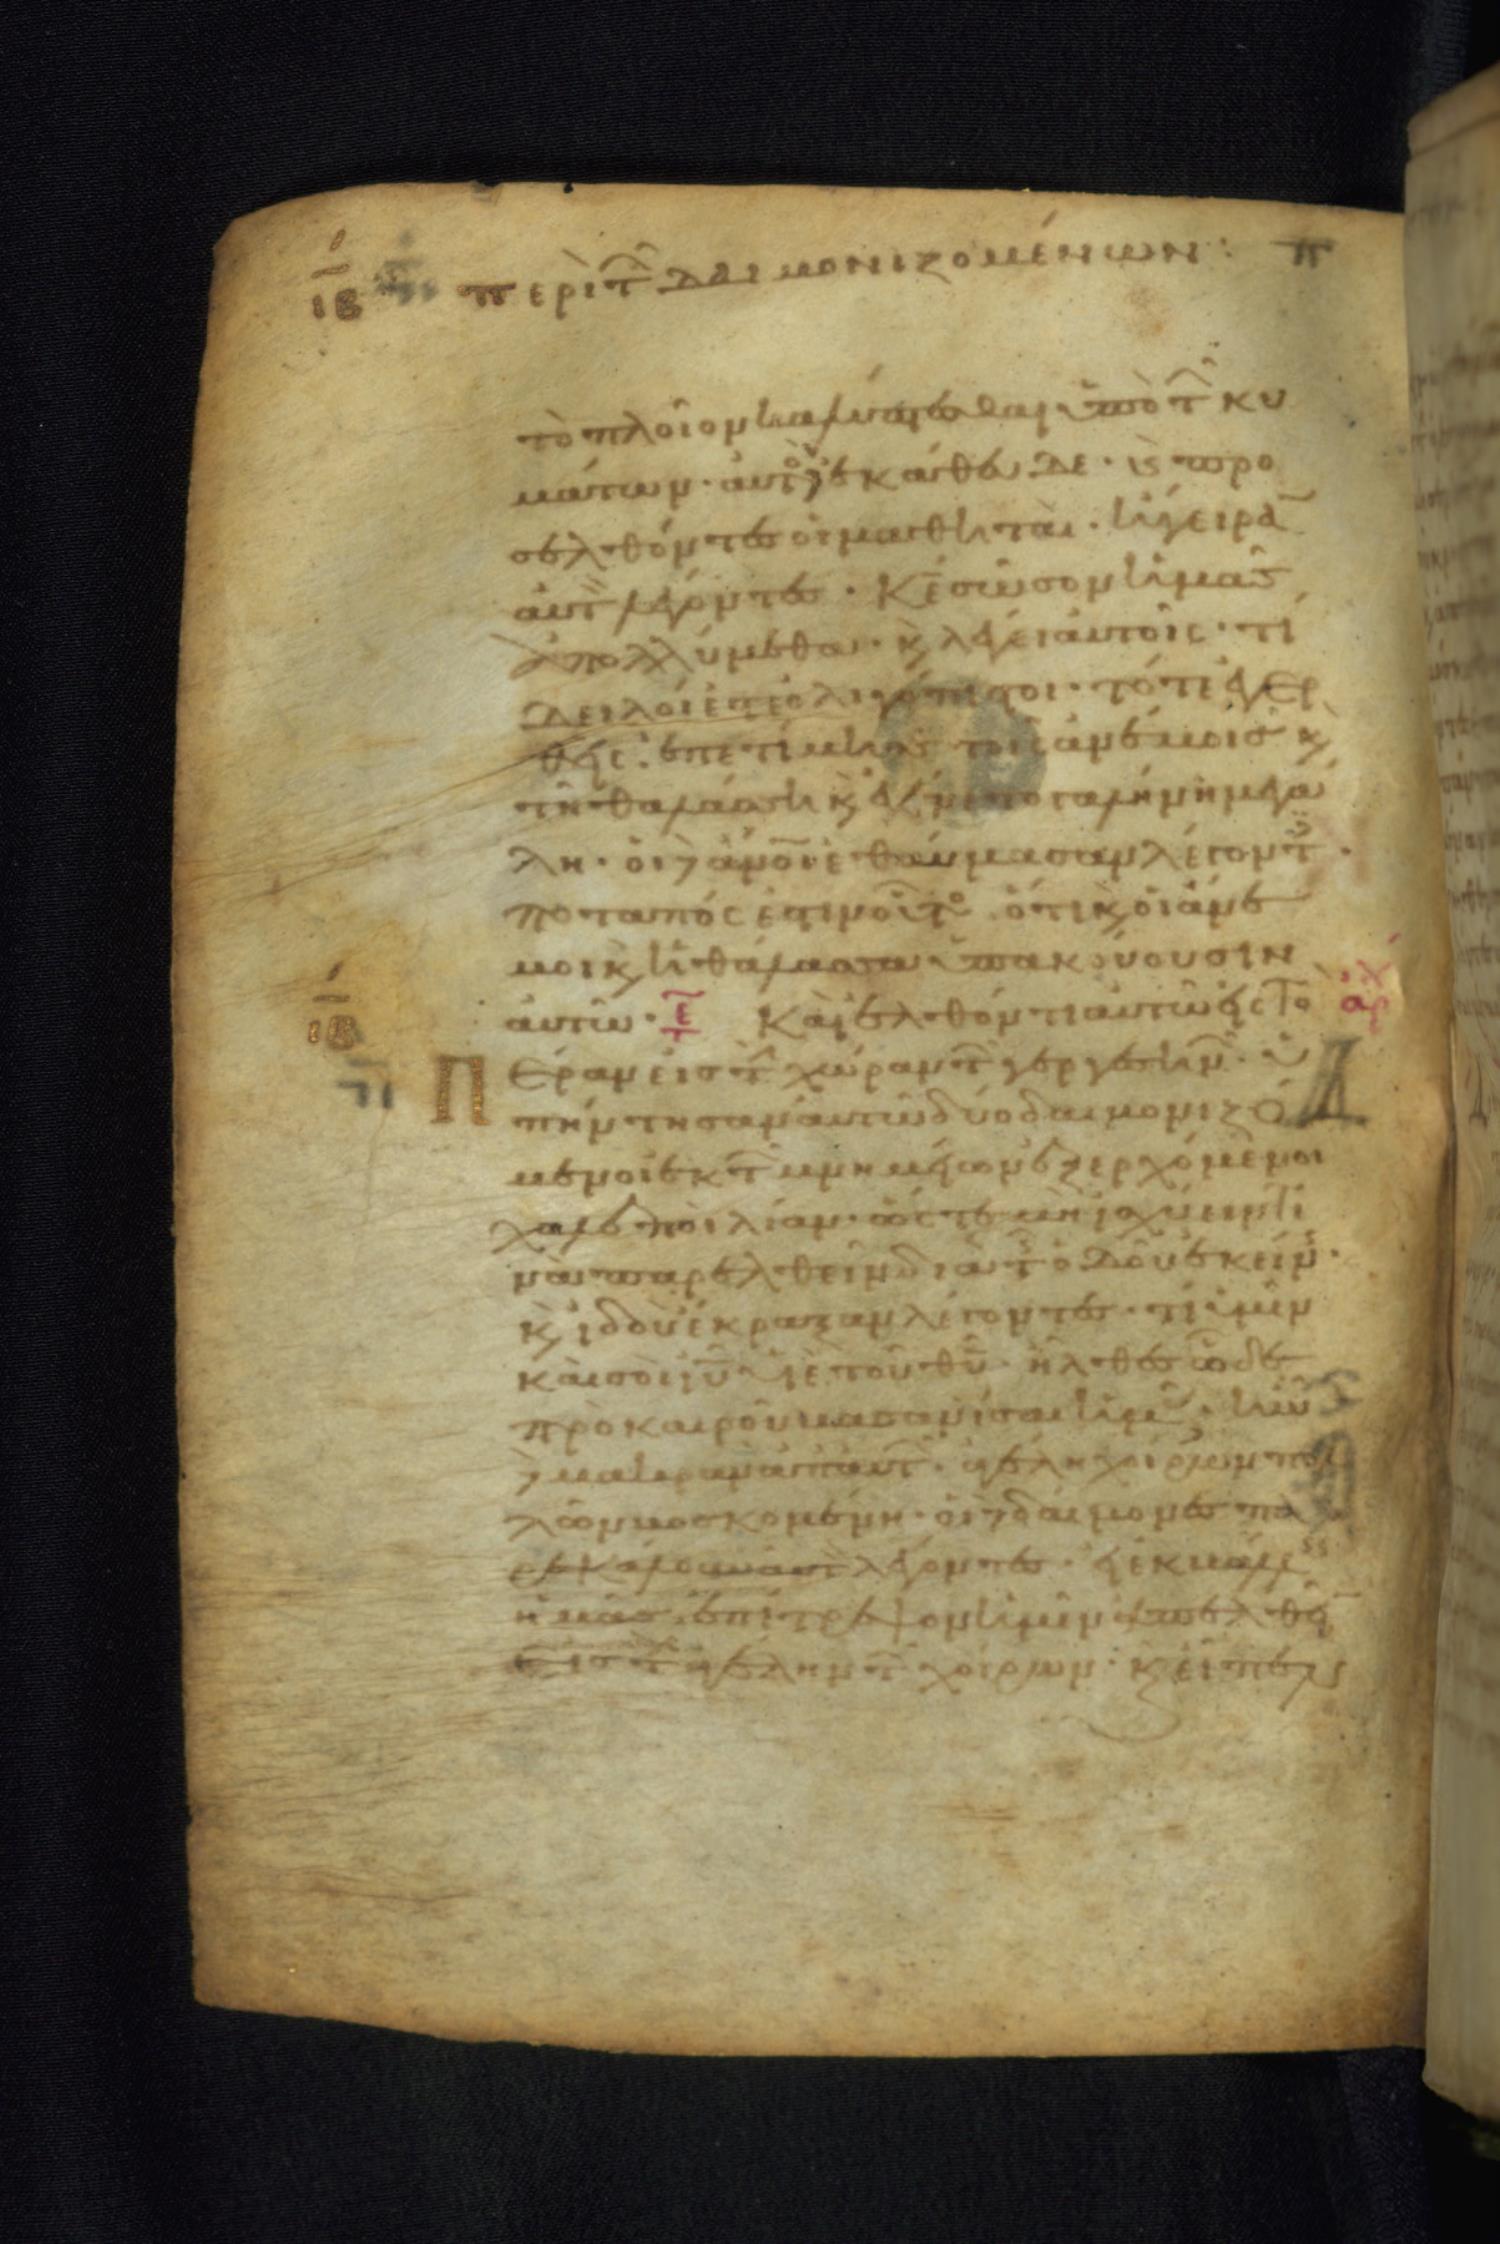 ιβ περὶ τ δαιμονιζομένων: π
τὸ πλοῖον καλύπτεσθαι ὑπὸ τ κυ
μάτων· αυτο ἐκάθευδε· κς προ
σελθόντες οἱ μαθηταὶ· ἤγειρα
αυτ λέγοντες· Κε σῶσον ἡμᾶς
ἀπολλύμεθα· κ λέγει αυτοῖς· τί
δειλοί ἐστε ὀλιγόπιστοι· τότε ἐγερ
θείς· ἐπετίμησε τοῖς ἀνέμοις κ
τῆ θαλάσση κ ἐγένετο γαλήνη μεγά
λη· οἱ δ ἀνοι ἐθαύμασαν λέγοντ·
ποταπός ἐστιν οὗτο ὅτι κ οἱ ἄνε
μοι κ ἡ θάλασσα ὑπακούουσιν
αυτῶ· τε Καὶ ἐλθόντι αυτῶ εἰς Το αρχ
ιβ Πέραν εἰς τ χώραν τ γεργεσην· ὑ
πήντησαν αυτῶ δύο δαιμονιζό
μενοι ἐκ τ μνημείων ἐξερχόμενοι
χαλεποὶ λίαν· ὥστε μὴ ἰσχύειν τι
νὰ παρελθεῖν διὰ τ ὁδοῦ ἐκείν·
κ ἰδοὺ ἔκραξαν λέγοντες· τί ἡμῖν
καὶ σοὶ ιυ υἱὲ τοῦ θυ· ἦλθες ὧδε
πρὸ καιροῦ βασανίσαι ἡμ· ἦν
δ μακρὰν ἀπ αυτ· ἀγέλη χοίρων πολ
λῶν βοσκομένη· οἱ δ δαίμονες πα
ρεκάλουν αυτ λέγοντες· εἰ ἐκβάλλ
ἡμᾶς ἐπίτρεψον ἡμῖν ἀπελθεῖ
εἰς τ ἀγέλην τ χοίρων· κ εἶπεν